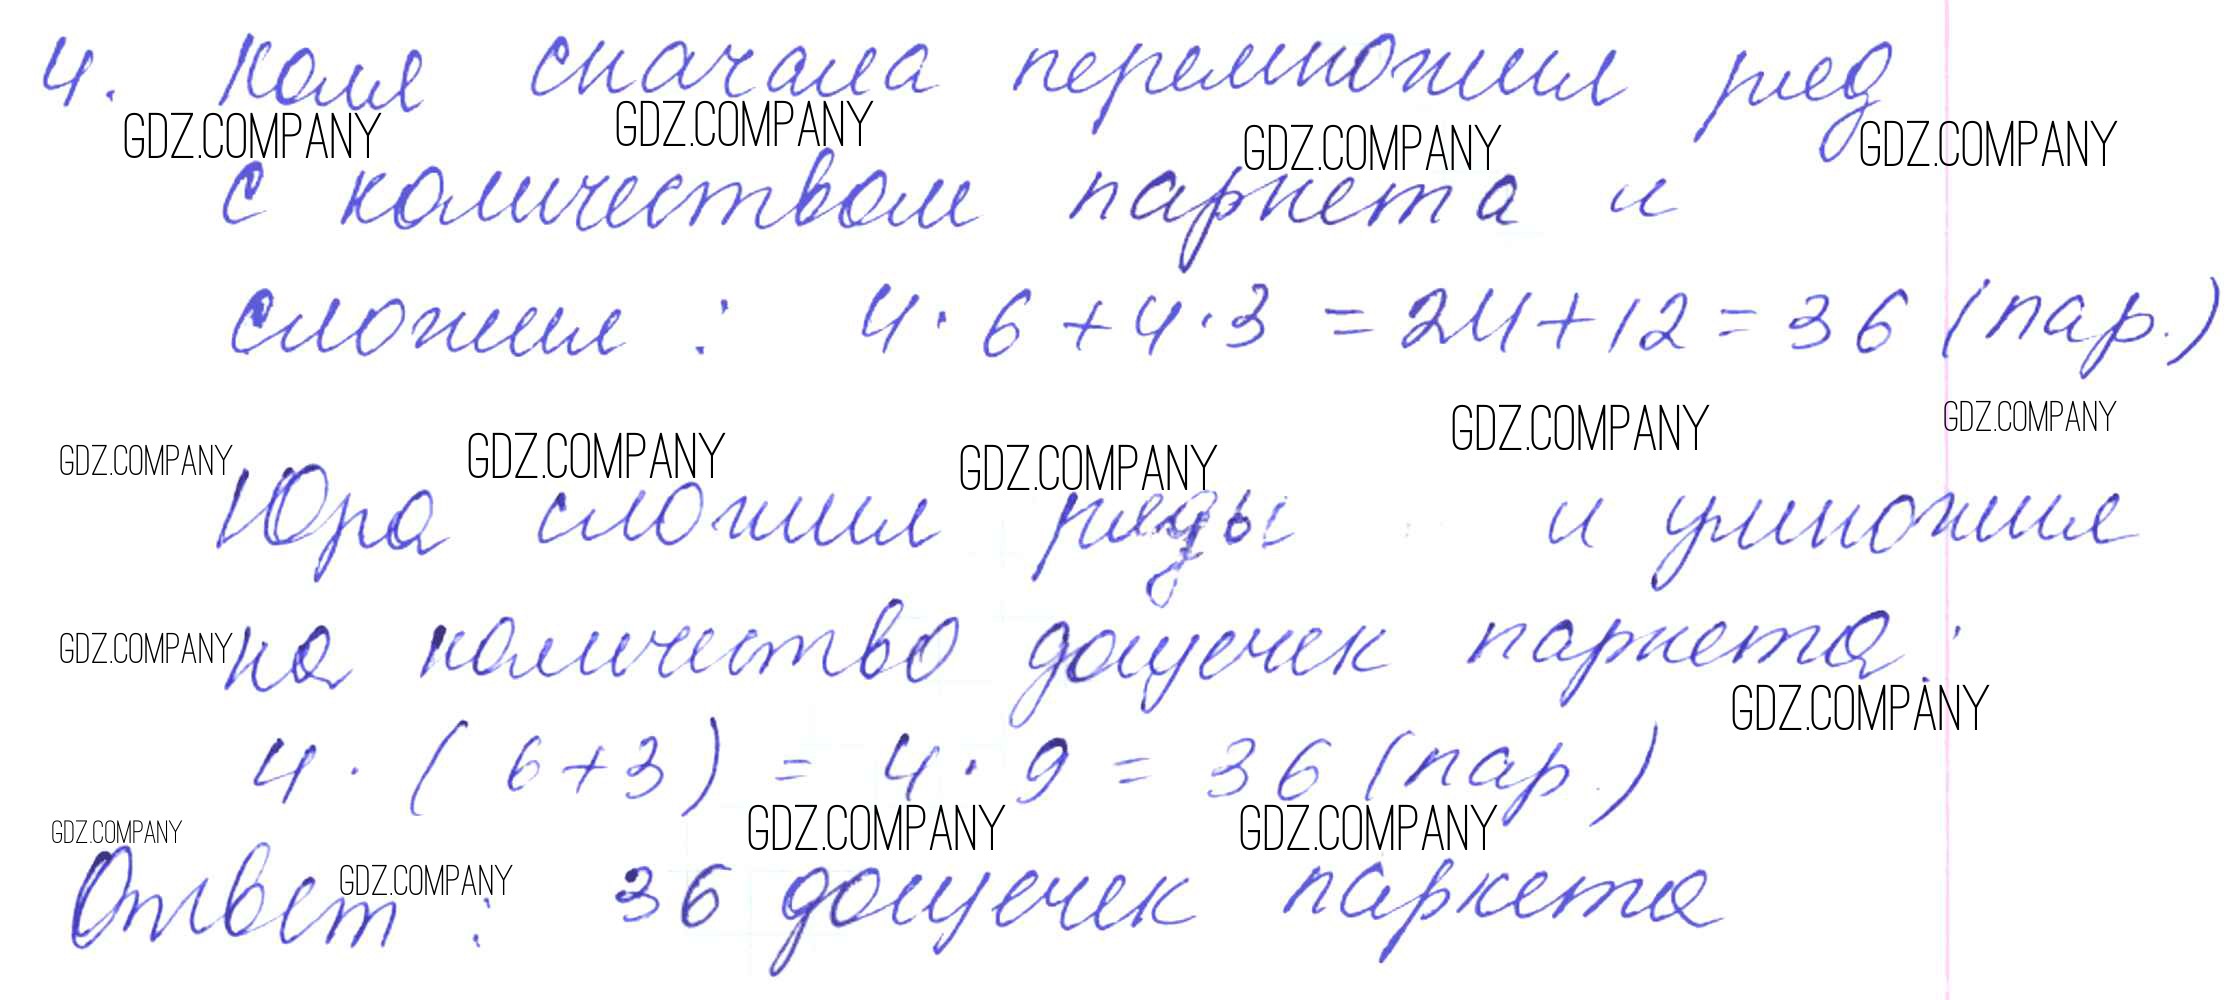 4. Коля сначала перемножил ряд
GDZ.COMPANY GDZ.COMPANY GDZ.COMPANY GDZ.COMPANY
с количеством паркета и
сложил: 4·6+4·3=24+12=36 (пар.)
GDZ.COMPANY GDZ.COMPANY GDZ.COMPANY GDZ.COMPANY GDZ.COMPANY
Юра сложил ряды и умножил
GDZ.COMPANY на количество дощечек паркета:
GDZ.COMPANY
4·(6+3)=4·9=36 (пар.)
GDZ.COMPANY GDZ.COMPANY GDZ.COMPANY
GDZ.COMPANY
Ответ: 36 дощечек паркета